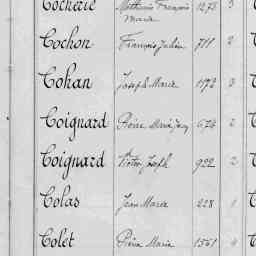 Cocherie Mathurin François 1275 3
Marie
Cochon François Julien 711 2
Cohan Joseph Marie 1172 3
Coignard Pierre Marie Jean 674 2
Coignard Victor Joseph 922 2
Colas Jean Marie 228 1
Colet Pierre Marie 1561 4